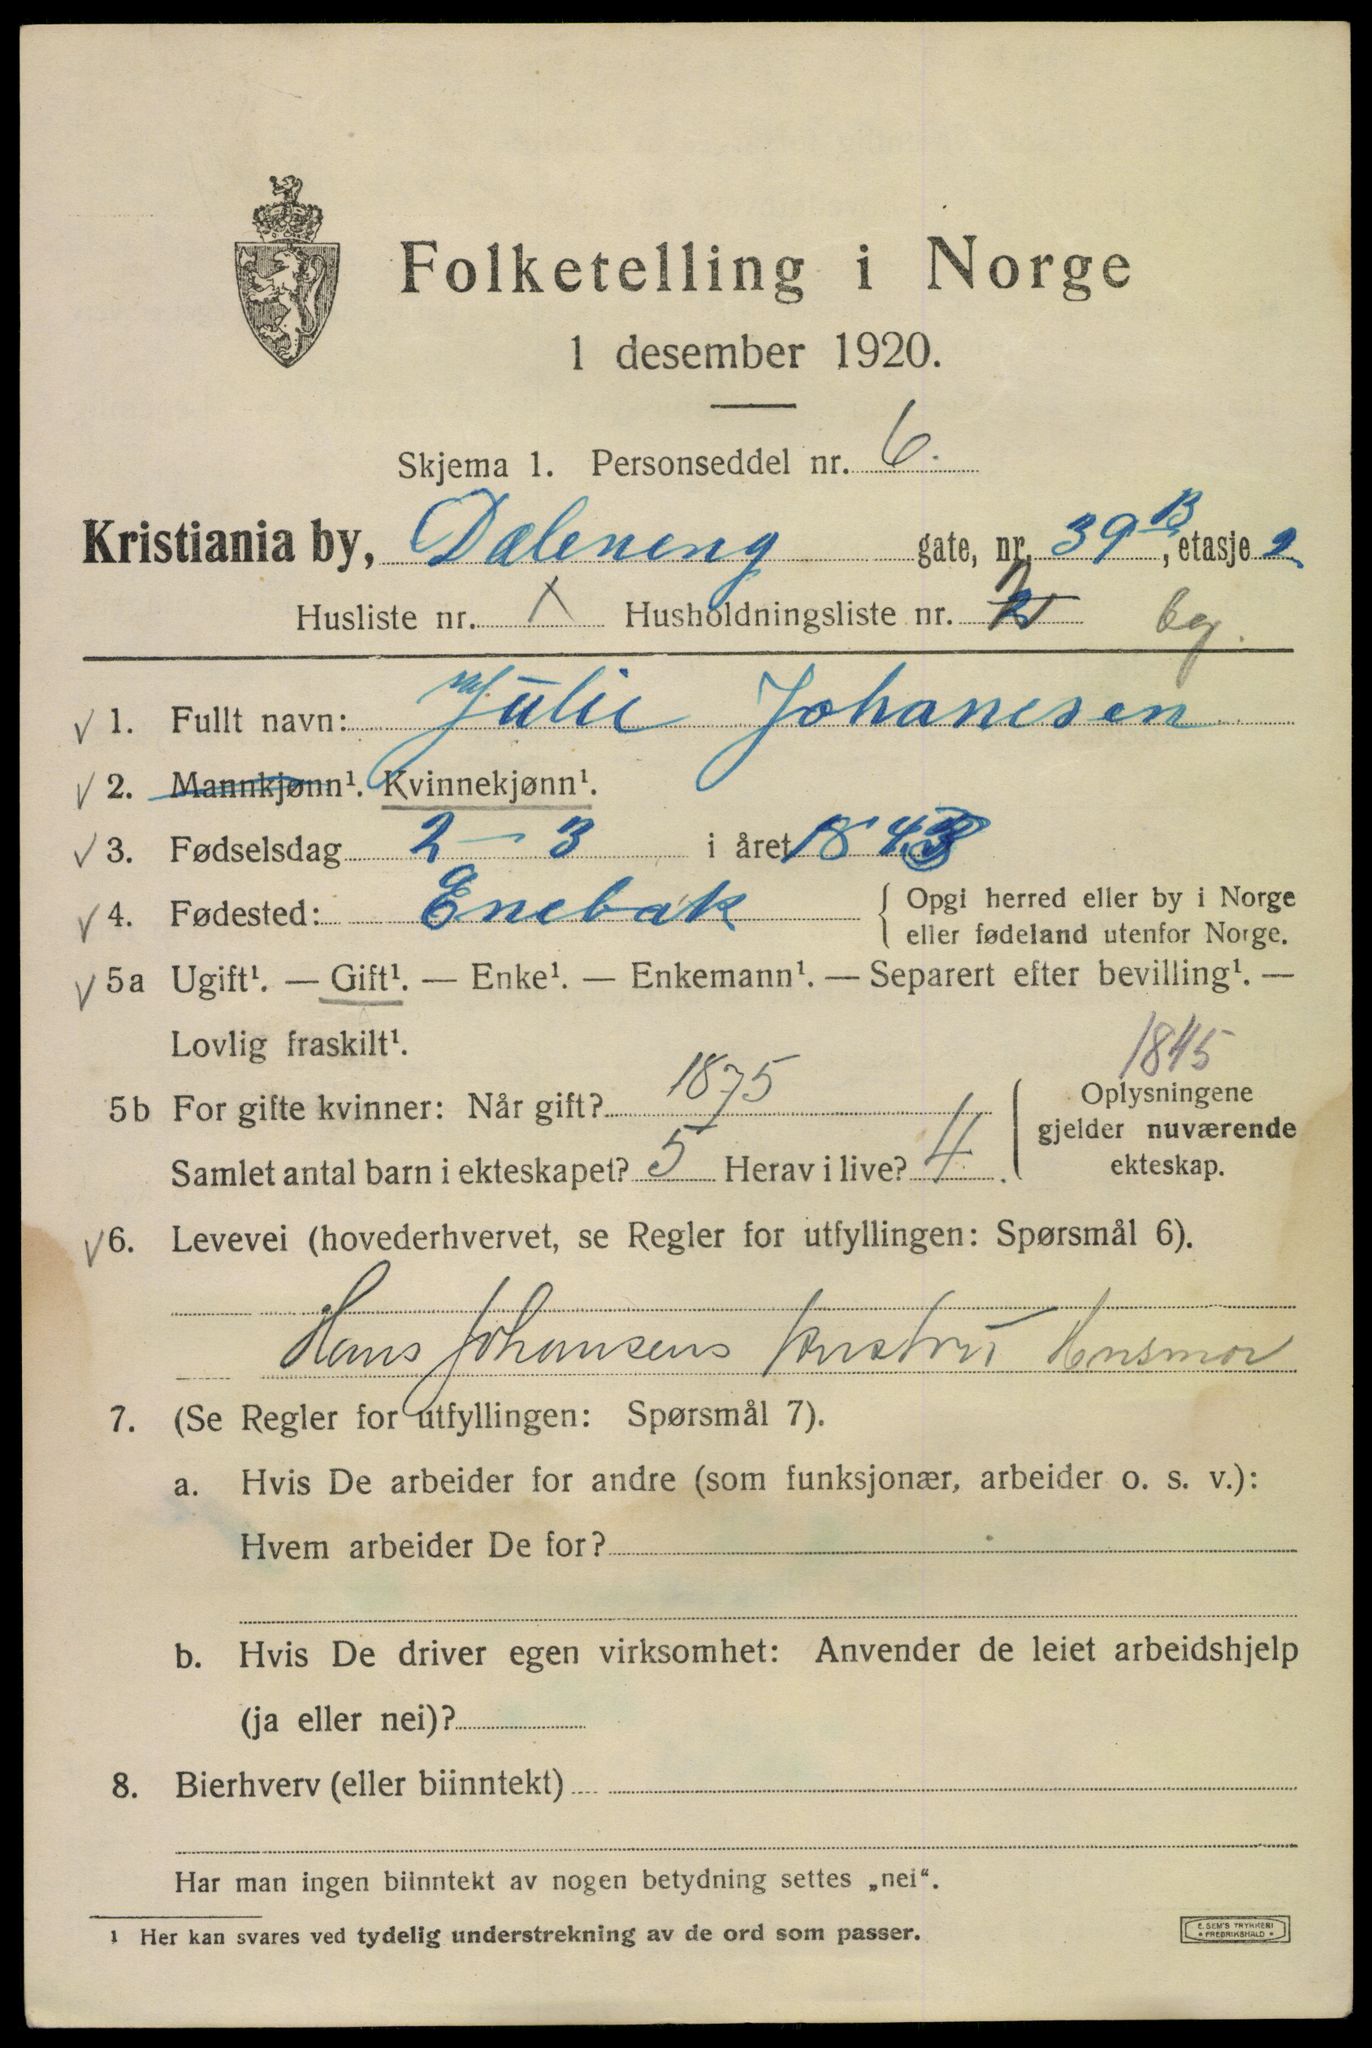 Folketelling i Norge
1 desember 1920.
Skjema 1. Personseddel nr. 6.
Kristiania by, Dæleneng gate, nr. 39 B, etasje 2
Husliste nr. X Husholdningsliste nr.
1. Fullt navn: Julie Johanesen
2. Mannkjønn¹. Kvinnekjønn¹.
3. Fødselsdag 2 - 3 i året 1843
4. Fødested: Enebak { Opgi herred eller by i Norge
eller fødeland utenfor Norge.
5a Ugift¹. — Gift¹. — Enke¹. — Enkemann¹. — Separert efter bevilling¹. —
Lovlig fraskilt¹.
1845
5b For gifte kvinner: Når gift? 1875
Samlet antal barn i ekteskapet? 5 Herav i live? 4.
Oplysningene
gjelder nuværende
ekteskap.
6. Levevei (hovederhvervet, se Regler for utfyllingen: Spørsmål 6).
Hans Johansens Husmor
7. (Se Regler for utfyllingen: Spørsmål 7).
a. Hvis De arbeider for andre (som funksjonær, arbeider o. s. v.):
Hvem arbeider De for?
b. Hvis De driver egen virksomhet: Anvender de leiet arbeidshjelp
(ja eller nei)?
8. Bierhverv (eller biinntekt)
Har man ingen biinntekt av nogen betydning settes „nei“.
1 Her kan svares ved tydelig understrekning av de ord som passer.
E. SEM'S TRYKKERI
• FREDRIKSHALD •